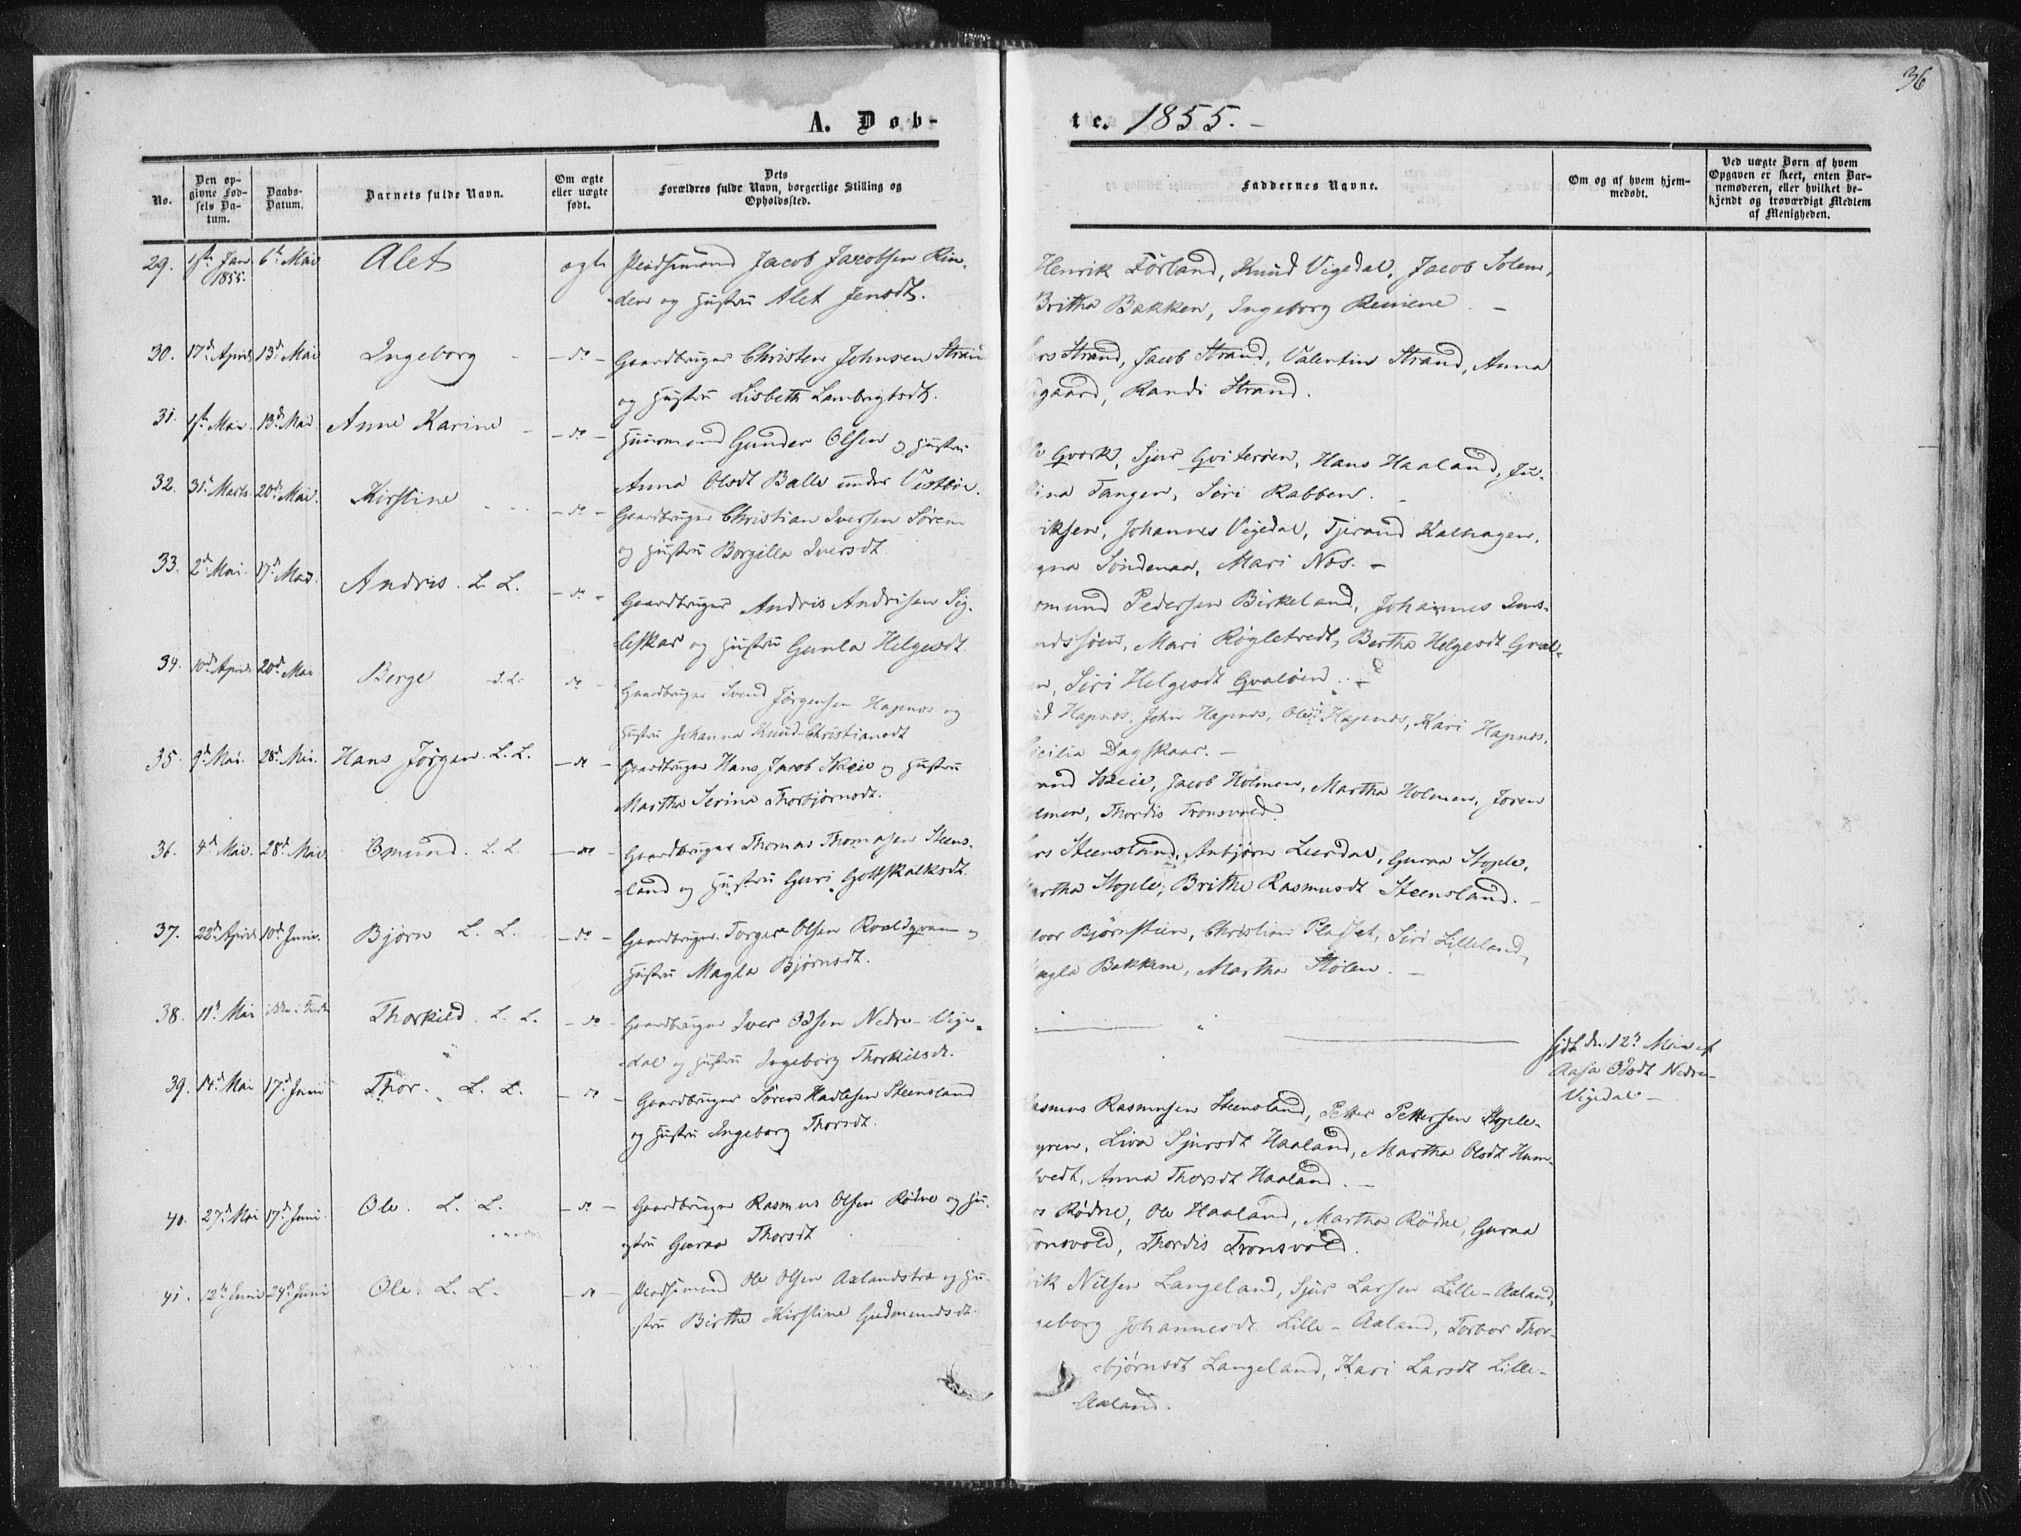 36
A. Døb-
te. 1855. -
No.
Den op-
givne Fød-
sels Da-
tum.
Daabs-
Datum.
Barnets fulde Navn.
Om ægte
eller uægte
født.
Dets
Forældres fulde Navn, borgerlige Stilling og
Opholdssted.
Faddernes Navne.
Om og af hvem hjem-
medøbt.
Ved uægte Børn af hvem
Opgaven er skeet, enten Bar-
nemoderen, eller hvilket be-
kjendt og troværdigt Medlem
af Menigheden.
29. 1ste Jan 6te Mai Alet ægte Pladsmand Jacob Jacobsen Rin-
1855.
den og Hustru Alet Jensdt.
Henrik Førland, Knud Vigedal, Jacob Solem,
Britha Bakken, Ingeborg
30. 17d April 13d Mai Ingeborg - do - Gaardbruger Christen Johnsen Stran
og Hustru Lisbeth Lambrigtsdt.
Strand, Jacob Strand, Valentin Strand, Anna
gaard, Randi Strand.
31. 1ste Mai 13d Mai Anne Karine - do - Huusmand Gunder Olsen og Hustru
Anna Olsdt Balle under Vestbøe.
Qvark, Sjur Qviterøen, Hans Haaland, Ju-
Tangen, Siri Rabben.
32. 31. Marts 20d Mai Kirstine - do - Gaardbruger Christian Iversen Sørem
og Hustru Borgilla Iversdt
Johannes Vigedal, Tjerand Kalhagen,
Søndenaa, Mari Nos. -
33. 2d Mai 17d Mai Andris. L. L. - do - Gaardbruger Andris Andrisen Sig-
leskar og Hustru Gunla Helgesdt
Pedersen Birkeland, Johannes
Mari Røgletvedt, Bertha Helgesdt Qval-
Siri Helgesdt Qvaløen.
34. 10d April 20d Mai Berge L. L. do - Gaardbruger Svend Jørgensen Hapnes og
Hustru Johanna Knud-Christiansdt
Hapnes, John Hapnes, Hapnes, Kari Hapnes,
Dagskaar. -
35. 9d Mai. 28d Mai. Hans Jørgen L. L. - do - Gaardbruger Hans Jacob Skeie og Hustru
Martha Serina Thorbjørnsdt.
Skeie, Jacob Holmen, Martha Holmen, Joren
Thordis Tronsvold.
36. 4d Mai. 28d Mai. Omund. L. L. - do - Gaardbruger Thomas Thomasen Steens-
land og Hustru Guri Gottskalksdt.
Steensland, Anbjørn Lierdal, Guraa Stople,
Stople, Brithe Rasmusdt Steensland. -
37. 22d April 10d Juni. Bjørn L. L. - do - Gaardbruger Torger Olsen Roaldqvam og
Hustru Magla Bjørnsdt.
Bjørnstien, Christian Siri Lilleland,
Bakkene, Martha Stølen. -
38. 11te Mai Thorkild. L. L. - do - Gaardbruger Iver Odsen Nedre-Vige-
dal og Hustru Ingeborg Thorkildsdt.
hjdt den 12te Mai af
Aasa Nedre-
Vigedal -
39. 14d Mai 17d Juni Thor. L. L. - do - Gaardbruger Søren Hadlesen Steensland
og Hustru Ingeborg Thorsdt.
Rasmusen Steensland, Petter Pettersen Stople-
Liva Sjursdt Haaland, Martha Olsdt Hum-
Anna Thorsdt Haaland. -
40. 27d Mai 17d Juni. Ole. L. L. - do - Gaardbruger Rasmus Olsen Rødne og Hu-
stru Guraa Thorsdt
Rødne, Ole Haaland, Martha Rødne, Guraa
Thordis Tronsvold.
41. 12te Juni 24d Juni Ole. L. L. - do - Pladsmand Ole Olsen Aalandstræ og Hu-
stru Birthe Kirstine Gudmundsdt.
Nilsen Langeland, Sjur Larsen Lille-Aaland,
Johannesdt Lille-Aaland, Torbor Thor-
bjørnsdt Langeland, Kari Larsdt Lille-
Aaland.